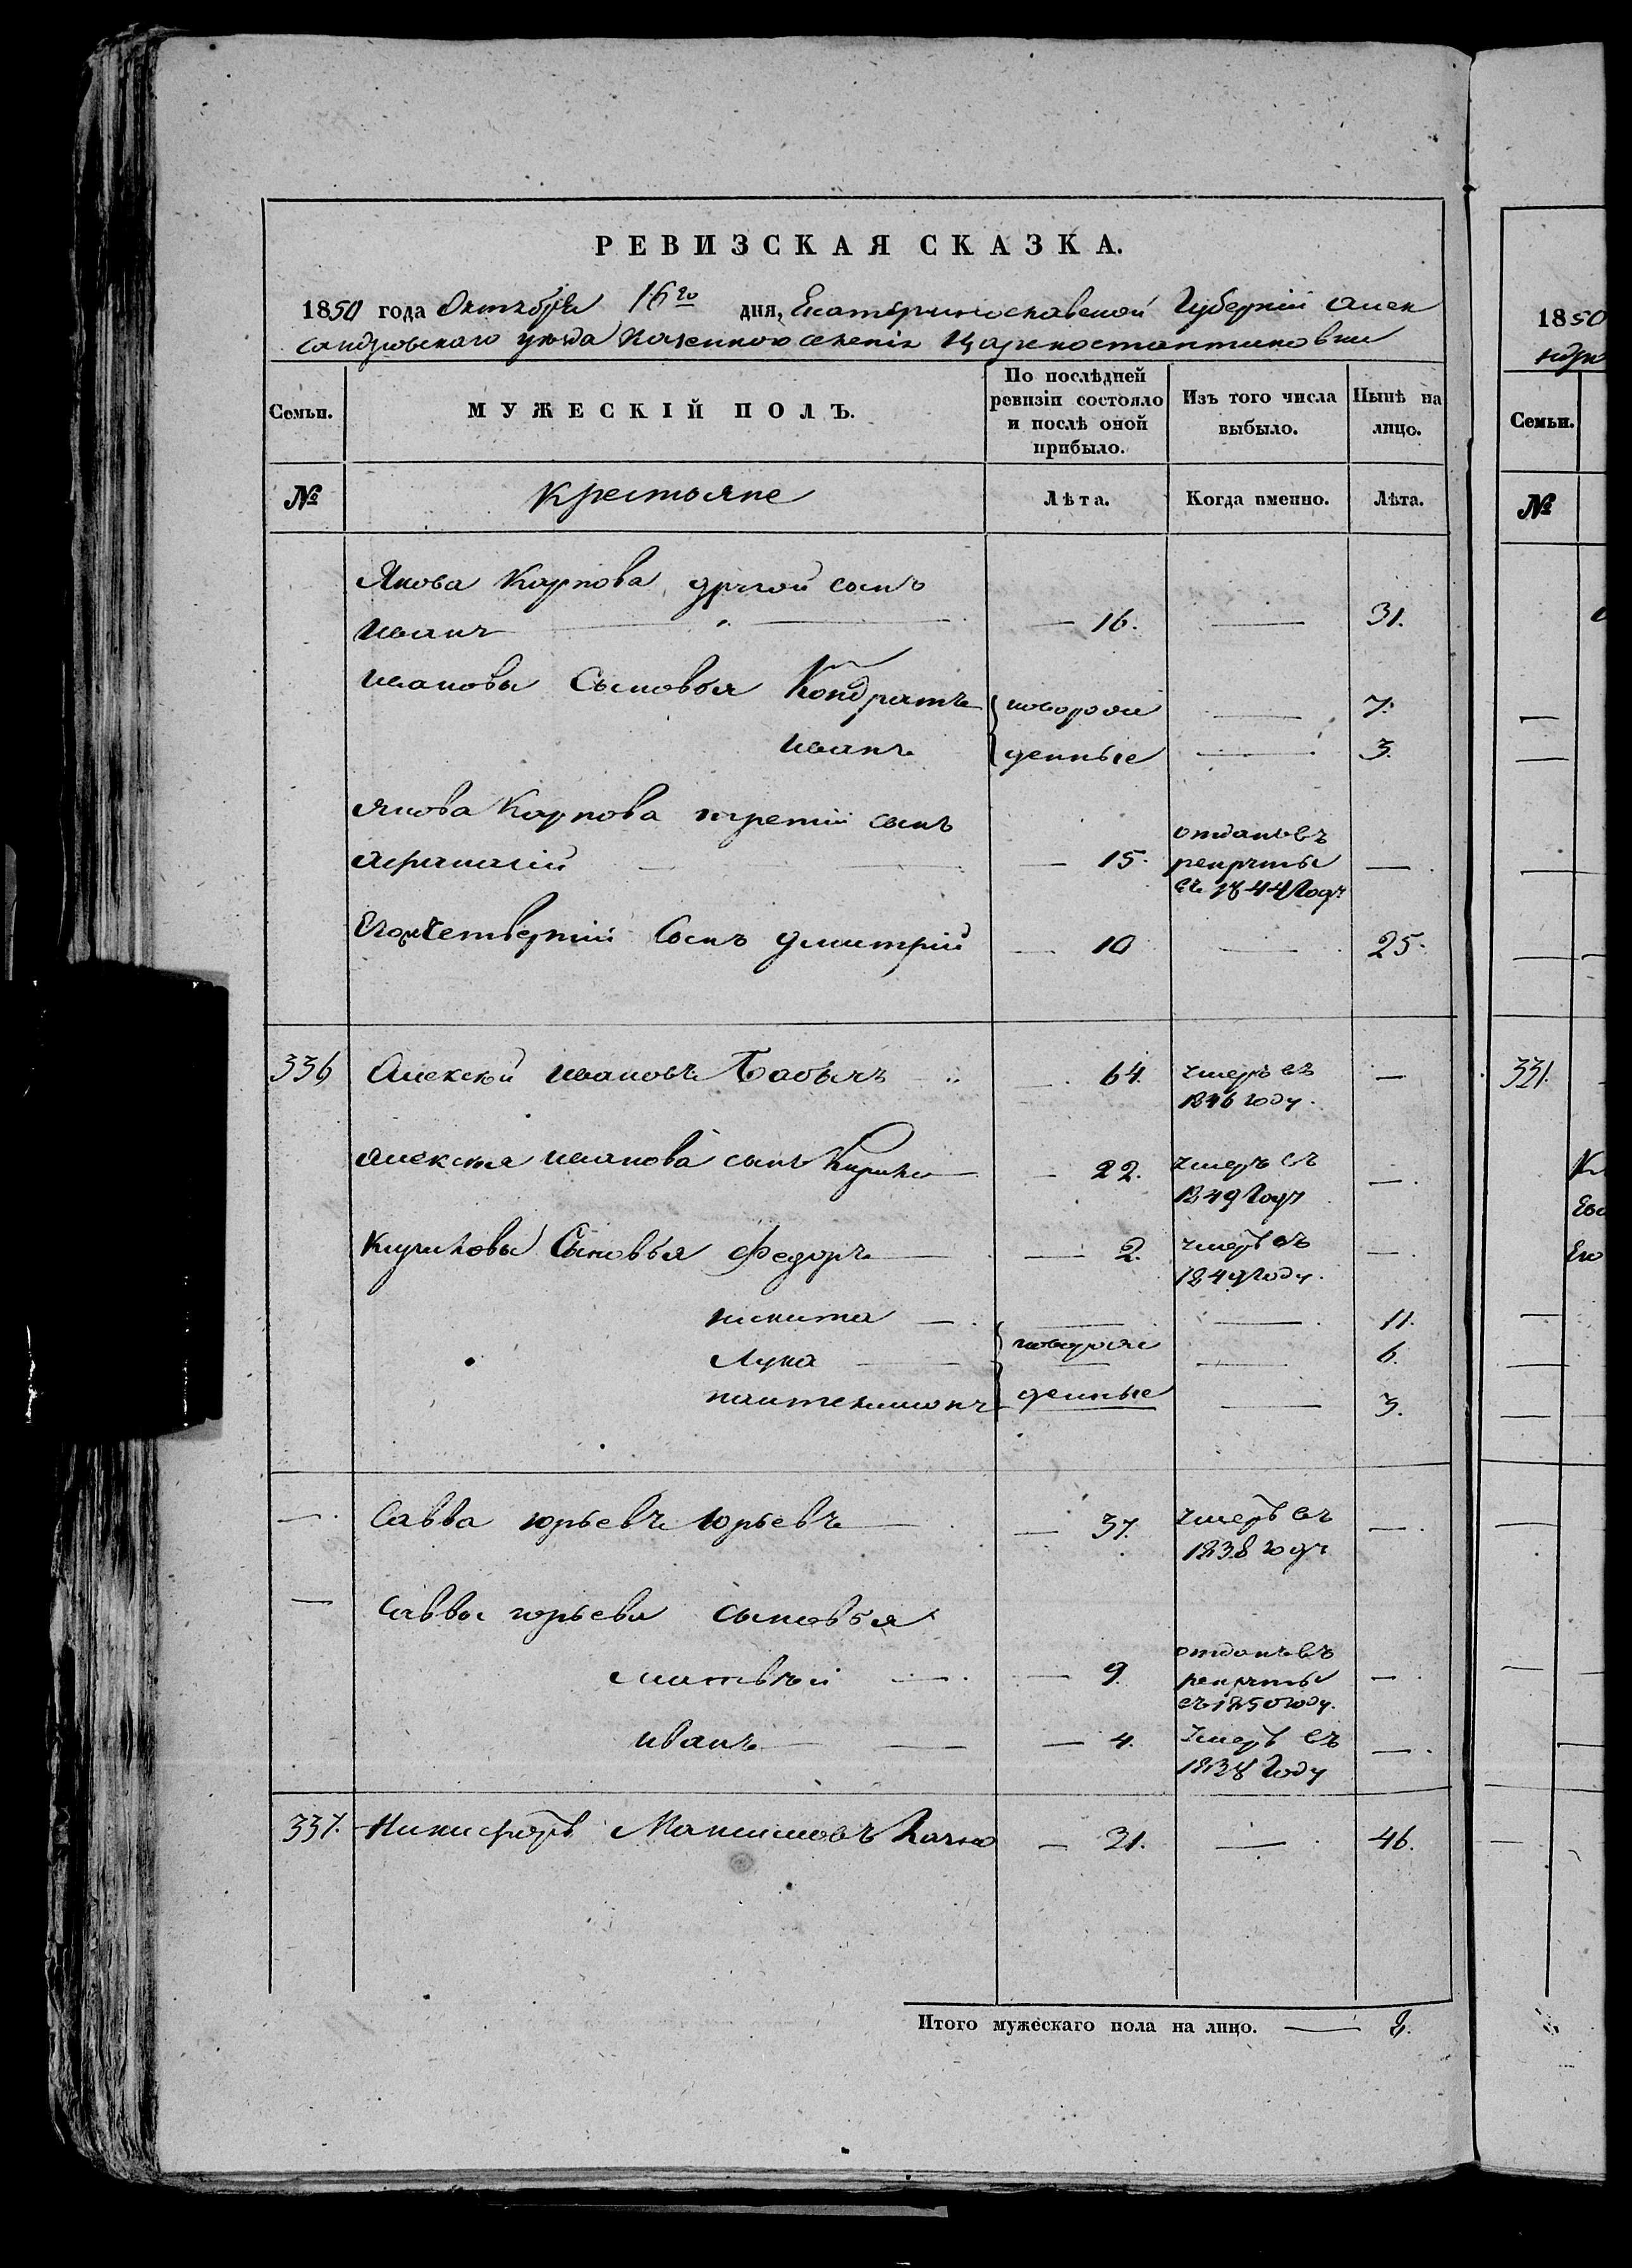 РЕВИЗСКАЯ СКАЗКА.
1850 года Октября 16го дня, Екатеринославской Губерніи Алек
сандровскаго уезда Казенного селенія Цареконстантиновки
Семьи. МУЖЕСКІЙ ПОЛЪ. По послѣдней ревизіи состояло и послѣ оной прибыло. Изъ того числа выбыло. Нынѣ на лицо.
№ Крестьяне Лѣта. Когда именно. Лѣта.
Якова Карпова другой сынъ
Иванъ — 16. — 31.
Ивановы Сыновья Кондратъ новорож — 7.
Иванъ денные — 3.
Якова Карпова третій сынъ
Афанасій — 15. отданъ въ рекруты въ 1844 Году —
Его Четвертій Сынъ Дмитрій — 10 — 25.
336 Алексѣй Ивановъ Бабычъ — 64. умеръ въ 1846 году. —
Алексея Иванова сынъ Кирило — 22. умеръ въ 1849 Году —
Кириловы Сыновья Федоръ — 2. умеръ въ 1849 Году. —
Никита — — 11.
Лука новорож — 6.
Пантелимонъ денные — 3.
— Савва Юрьевъ Юрьевъ — 37. умеръ въ 1838 году —
— Саввы Юрьева сыновья
Матвѣй — 9. отданъ въ рекруты въ 1850 году. —
Иванъ — 4. Умеръ въ 1838 Году —
337. Никифоръ Максимовъ — 31. — 46.
Итого мужескаго пола на лицо. — 8.
1850
Семьи.
№
331.
Его